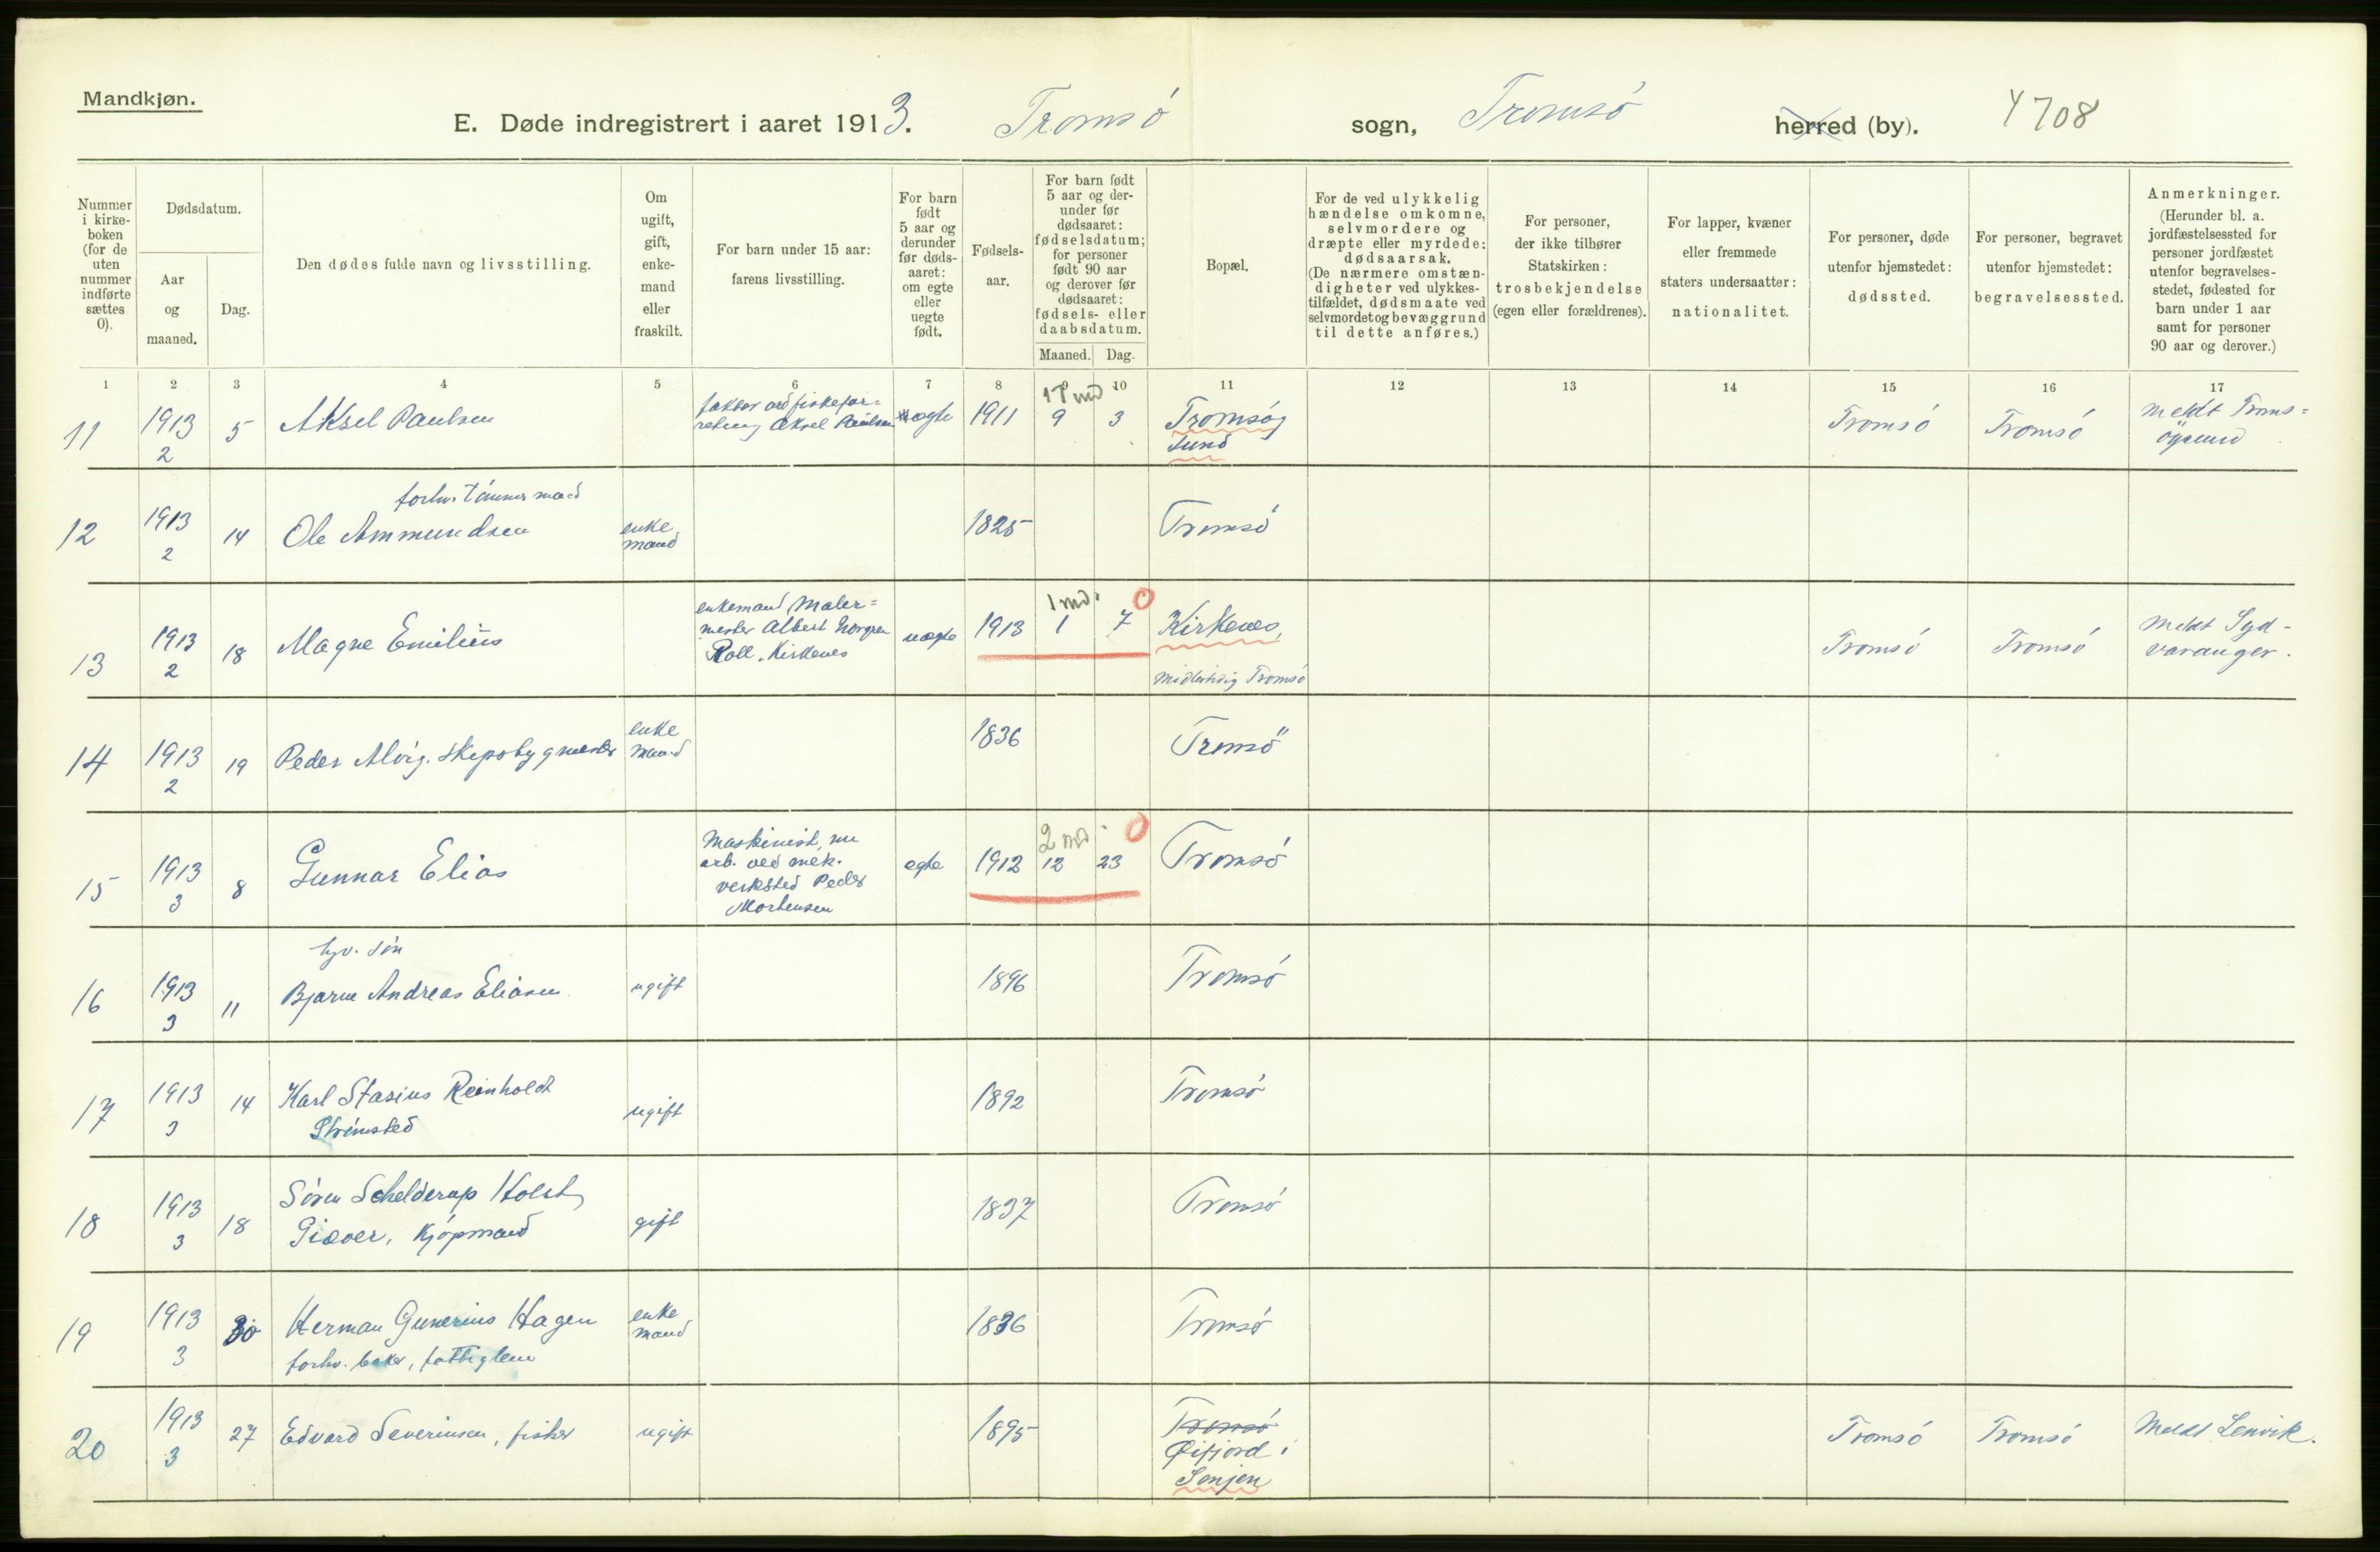 Mandkjøn.
E. Døde indregistrert i aaret 1913. Tromsö sogn, Tromsö herred (by). 4708
Nummer i kirke- boken (for de uten nummer indførte sættes 0).
Dødsdatum.
Aar og maaned.
Dag.
Den dødes fulde navn og livsstilling.
Om ugift, gift, enke- mand eller fraskilt.
For barn under 15 aar: farens livsstilling.
For barn født 5 aar og derunder før døds- aaret: om egte eller uegte født.
Fødsels- aar.
For barn født 5 aar og der- under før dødsaaret: fødselsdatum; for personer født 90 aar og derover før dødsaaret: fødsels- eller daabsdatum.
Maaned. Dag.
Bopæl.
For de ved ulykkelig hændelse omkomne, selvmordere og dræpte eller myrdede: dødsaarsak. (De nærmere omstæn- digheter ved ulykkes- tilfældet, dødsmaate ved selvmordet og bevæggrund til dette anføres.)
For personer, der ikke tilhører Statskirken: trosbekjendelse (egen eller forældrenes).
For lapper, kvæner eller fremmede staters undersaatter: nationalitet.
For personer, døde utenfor hjemstedet: dødssted.
For personer, begravet utenfor hjemstedet: begravelsessted.
Anmerkninger. (Herunder bl. a. jordfæstelsessted for personer jordfæstet utenfor begravelses- stedet, fødested for barn under 1 aar samt for personer 90 aar og derover.)
1 2 3 4 5 6 7 8 9 10 11 12 13 14 15 16 17
11 1913 2 5 Aksel Paulsen Aksel Paulsen egte 1911 17 md 9 3 Tromsøysund Tromsö Tromsö meldt Troms= öysund
forhv. Tömmermand
12 1913 2 14 Ole Ammundsen enke mand 1825 Tromsö
13 1913 2 18 Magne Emilius enkemand, Maler= mester Albert Roll. Kirkenes uegte 1913 1 md. 1 7 Kirkenes, midlertidig Tromsö Tromsö Tromsö Meldt Syd- varanger.
14 1913 2 19 Peder Alvig. skipsbygmester enke mand 1836 Tromsö
15 1913 3 8 Gunnar Elias Maskinist, nu arb. ved mek. verksted Peder Mortensen egte 1912 2 md. 12 23 Tromsö
16 1913 3 11 Bjarne Andreas Eliasen ugift 1896 Tromsö
17 1913 3 14 Karl Stasius Reinholdt Strimsted ugift 1892 Tromsö
18 1913 3 18 Sören Schelderup Holst Giæver, Kjöpmand gift 1837 Tromsö
19 1913 3 20 Herman Gunerius Hagen forhv. baker, fattiglem enke mand 1836 Tromsö
20 1913 3 27 Edvard Severinsen, fisker ugift 1895 Tromsö Øifjord i Senjen Tromsö Tromsö Meldt Lenvik.